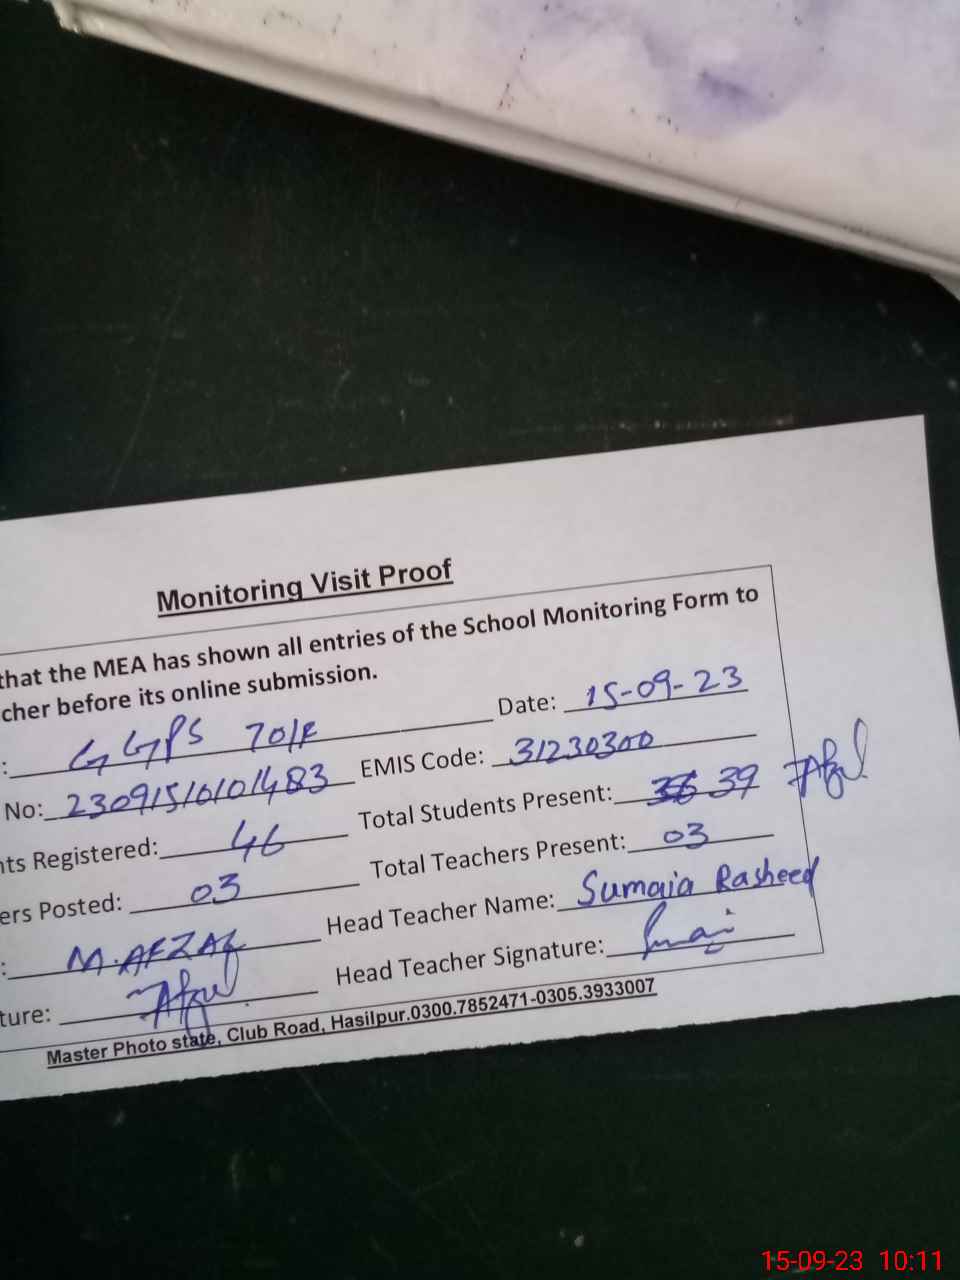 Monitoring Visit Proof
that the MEA has shown all entries of the School Monitoring Form to
cher before its online submission.
: GGPS 70/F Date: 15-09-23
No: 23091510101483 EMIS Code: 31230300
nts Registered: 46 Total Students Present: 39
ers Posted: 03 Total Teachers Present: 03
: M.AFZAL Head Teacher Name: Sumaia Rasheed
ture: Afzal Head Teacher Signature:
Master Photo state, Club Road, Hasilpur.0300.7852471-0305.3933007
15-09-23 10:11